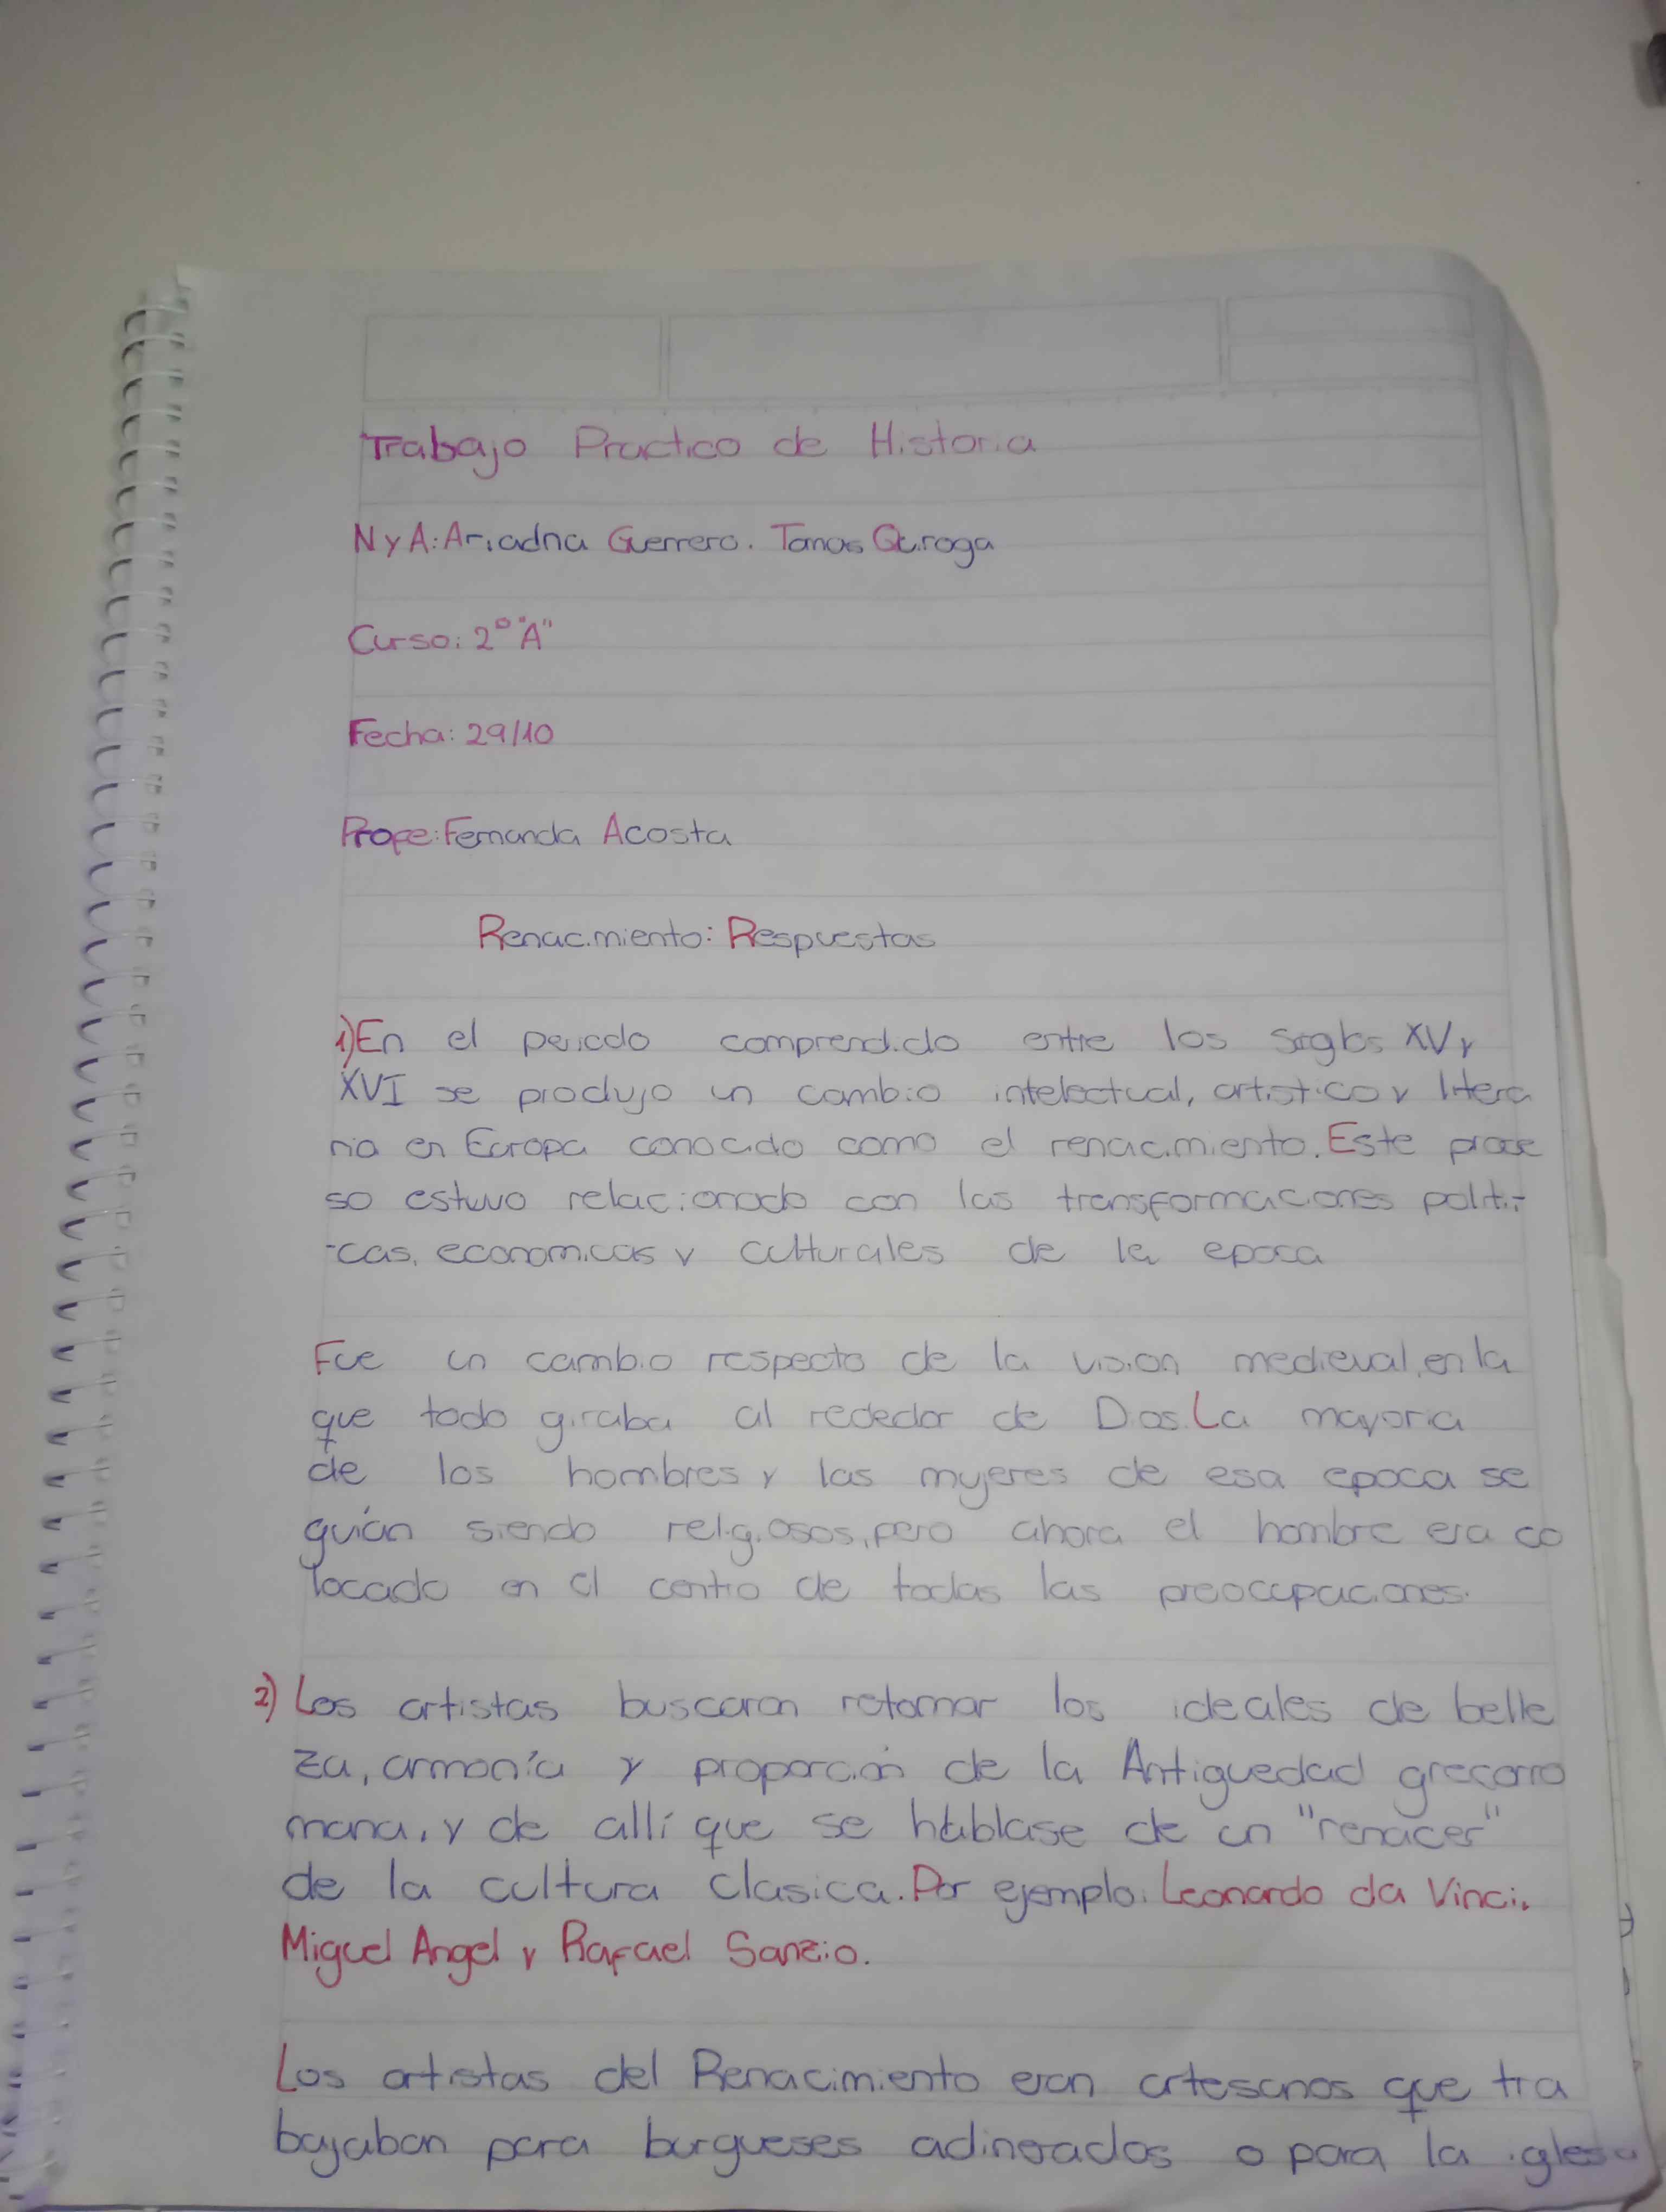 Trabajo Practico de Historia
N y A: Ariadna Guerrero. Tomas Quiroga
Curso: 2° "A"
Fecha: 29/10
Profe: Fernanda Acosta
Renacimiento: Respuestas
1) En el periodo comprendido entre los siglos XV y
XVI se produjo un cambio intelectual, artistico y litera
ria en Europa conocido como el renacimiento. Este proce
so estuvo relacionado con las transformaciones politi-
-cas, economicas y culturales de la epoca
Fue un cambio respecto de la vision medieval, en la
que todo giraba al rededor de Dios. La mayoria
de los hombres y las mujeres de esa epoca se
guián siendo religiosos, pero ahora el hombre era co
locado en el centro de todas las preocupaciones.
2) Los artistas buscaron retomar los ideales de belle
za, armonía y proporción de la Antiguedad grecorro
mana, y de allí que se hablase de un "renacer"
de la cultura clasica. Por ejemplo: Leonardo da Vinci,
Miguel Angel y Rafael Sanzio.
Los artistas del Renacimiento eran artesanos que tra
bajaban para burgueses adinerados o para la iglesia